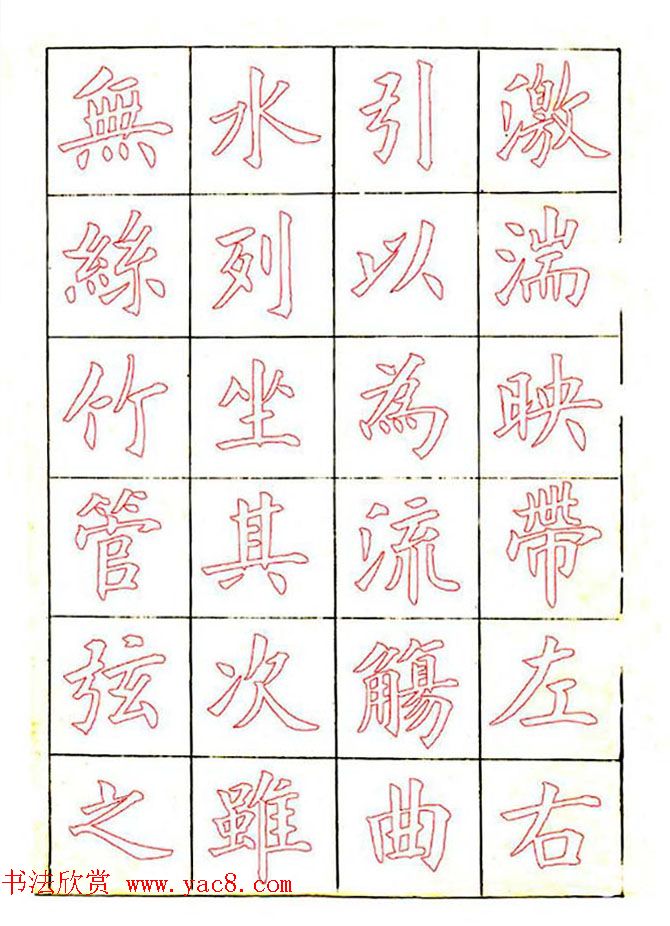 激湍映帶左右
引以為流觴曲
水列坐其次雖
無絲竹管弦之
书法欣赏 www.yac8.com